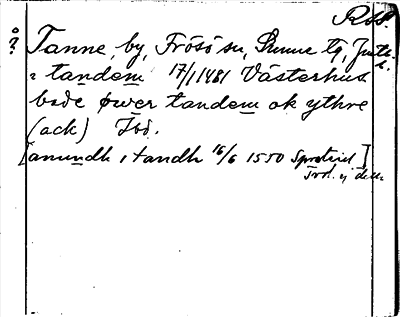 Tanne, by, Frösö sn, Sunne tg, Jmtl.
i tandem 17/1 1481 Västerhus
bode øwer tandem ok ythre
(ack) Ibd.
[amundh i tandh 16/6 1550